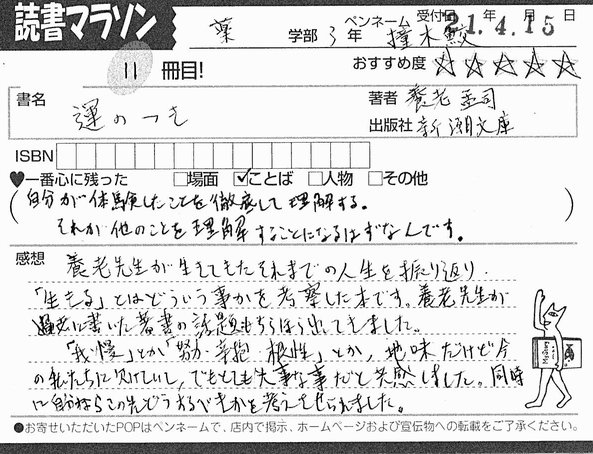 読書マラソン
薬 学部 3年 ペンネーム 撞木鮫 受付日 21年4月15日
11 冊目!
おすすめ度 ☆☆☆☆☆
書名 運のつき
著者 養老孟司
出版社 新潮文庫
ISBN
♥一番心に残った □場面 ☑ことば □人物 □その他
(自分が体験したことを徹底して理解する。
それが他のことを理解することになるはずなんです。)
感想 養老先生が生きてきたそれまでの人生を振り返り、
「生きる」とはどういう事かを考察した本です。養老先生が
過去に書いた著書の話題もちらほら出てきました。
「我慢」とか「努力・辛抱・根性」とか、地味だけど今
の私たちに欠けていて、でもとても大事な事だと共感しました。同時
に自分ならこの先どうするべきかを考えさせられました。
●お寄せいただいたPOPはペンネームで、店内で掲示、ホームページおよび宣伝物への転載をご了承ください。